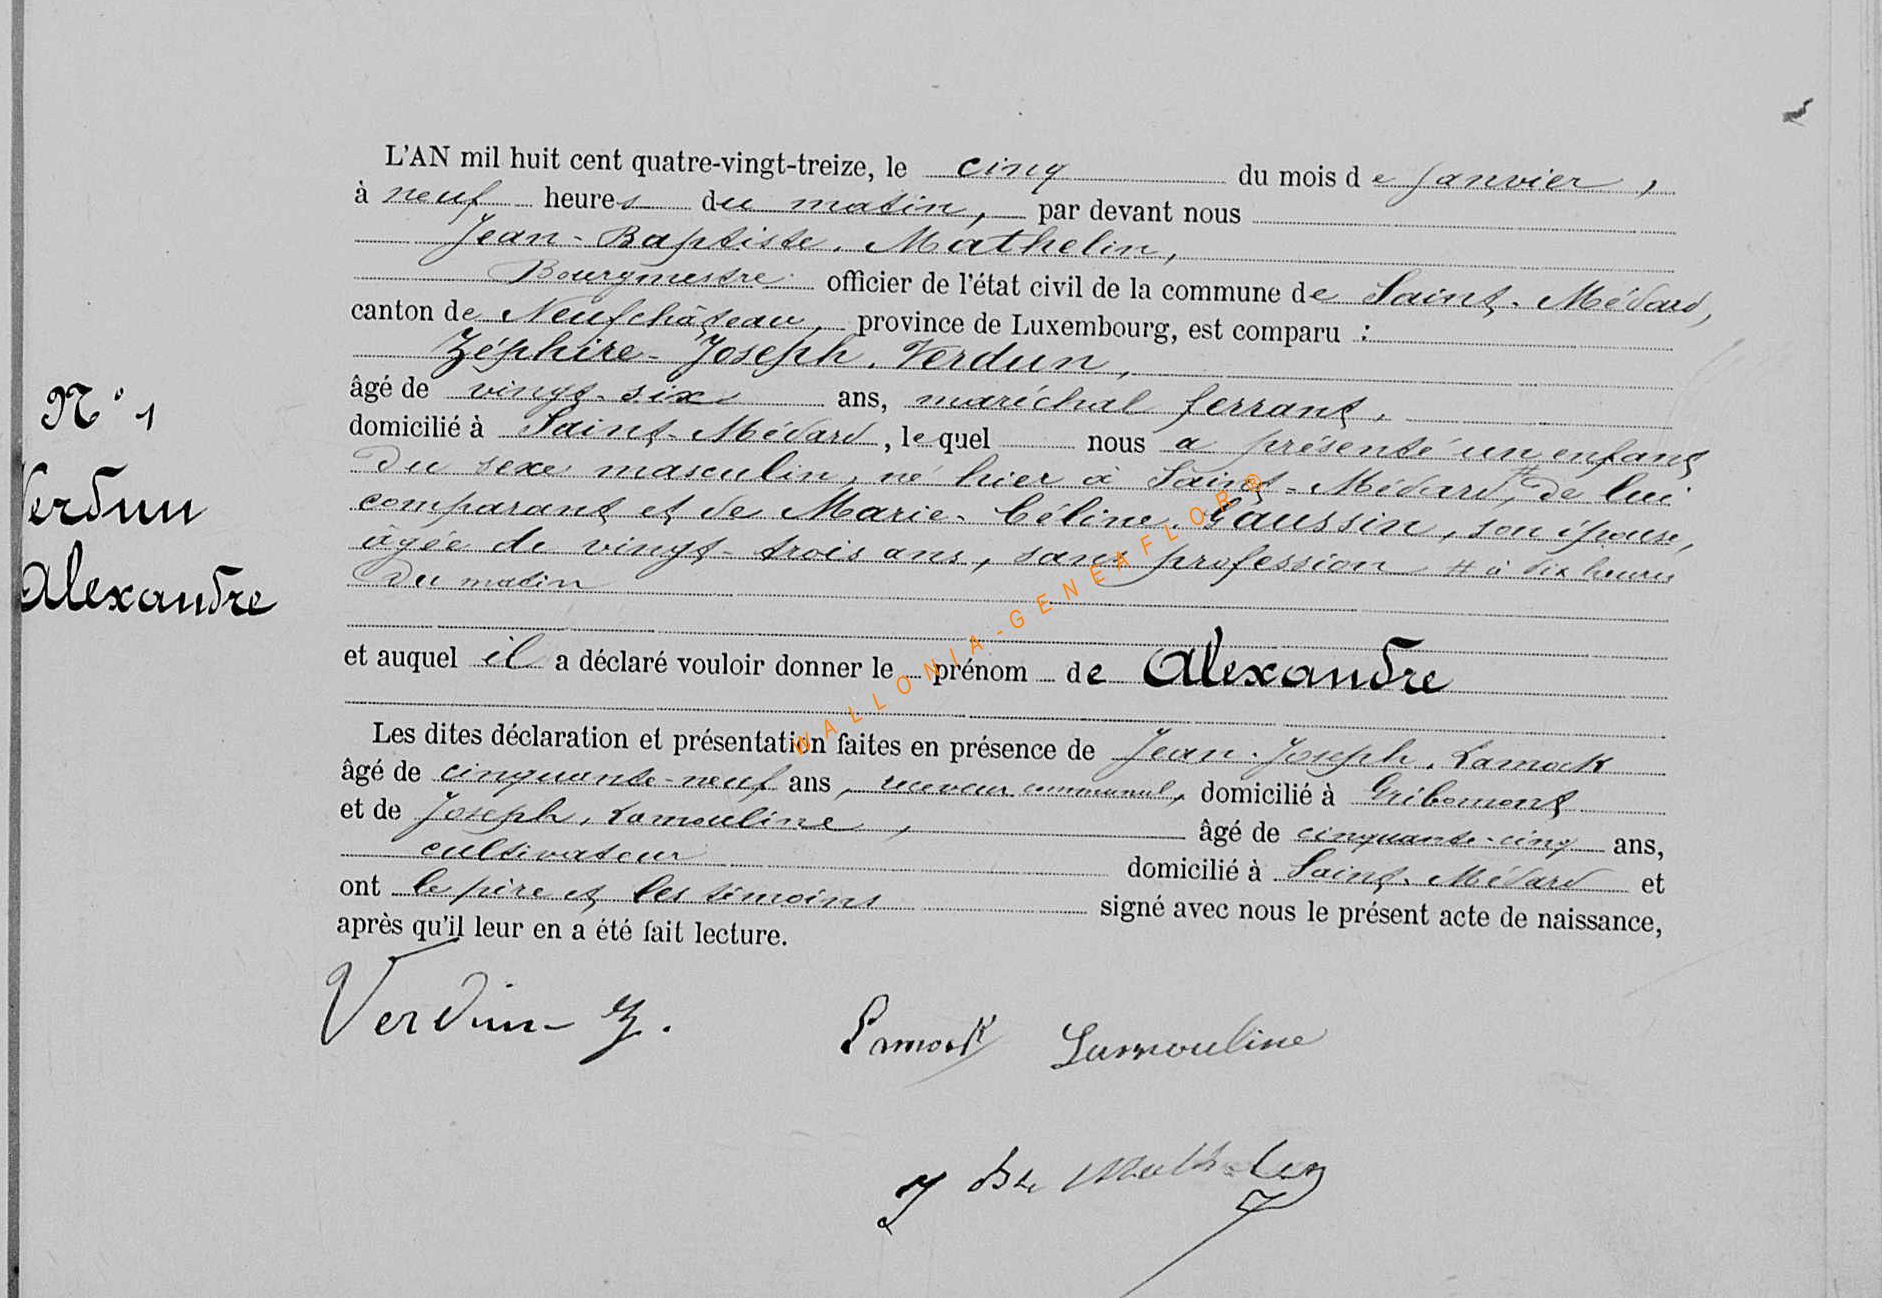 L'AN mil huit cent quatre-vingt-treize, le cinq du mois de Janvier,
à neuf heures du matin, par devant nous
Jean-Baptiste. Mathelin,
Bourgmestre officier de l'état civil de la commune de Saint-Médard,
canton de Neufchâteau, province de Luxembourg, est comparu :
Zéphire-Joseph. Verdun,
âgé de vingt-six ans, maréchal ferrant,
domicilié à Saint-Médard, lequel nous a présenté un enfant
du sexe masculin, né hier à Saint-Médard, # de lui
comparant et de Marie-Céline. Gaussin, son épouse,
âgée de vingt-trois ans, sans profession # à dix heures
du matin
N° 1
Verdun
Alexandre
et auquel il a déclaré vouloir donner le prénom de Alexandre
Les dites déclaration et présentation faites en présence de Jean-Joseph. Lamock
âgé de cinquante-neuf ans, receveur communal, domicilié à Gribomont
et de Joseph. Lamouline, âgé de cinquante-cinq ans,
cultivateur domicilié à Saint-Médard et
ont le père et les témoins signé avec nous le présent acte de naissance,
après qu'il leur en a été fait lecture.
Verdun Z. Lamock Lamouline
J Bte Mathelin
WALLONIA-GENEAFLOR®